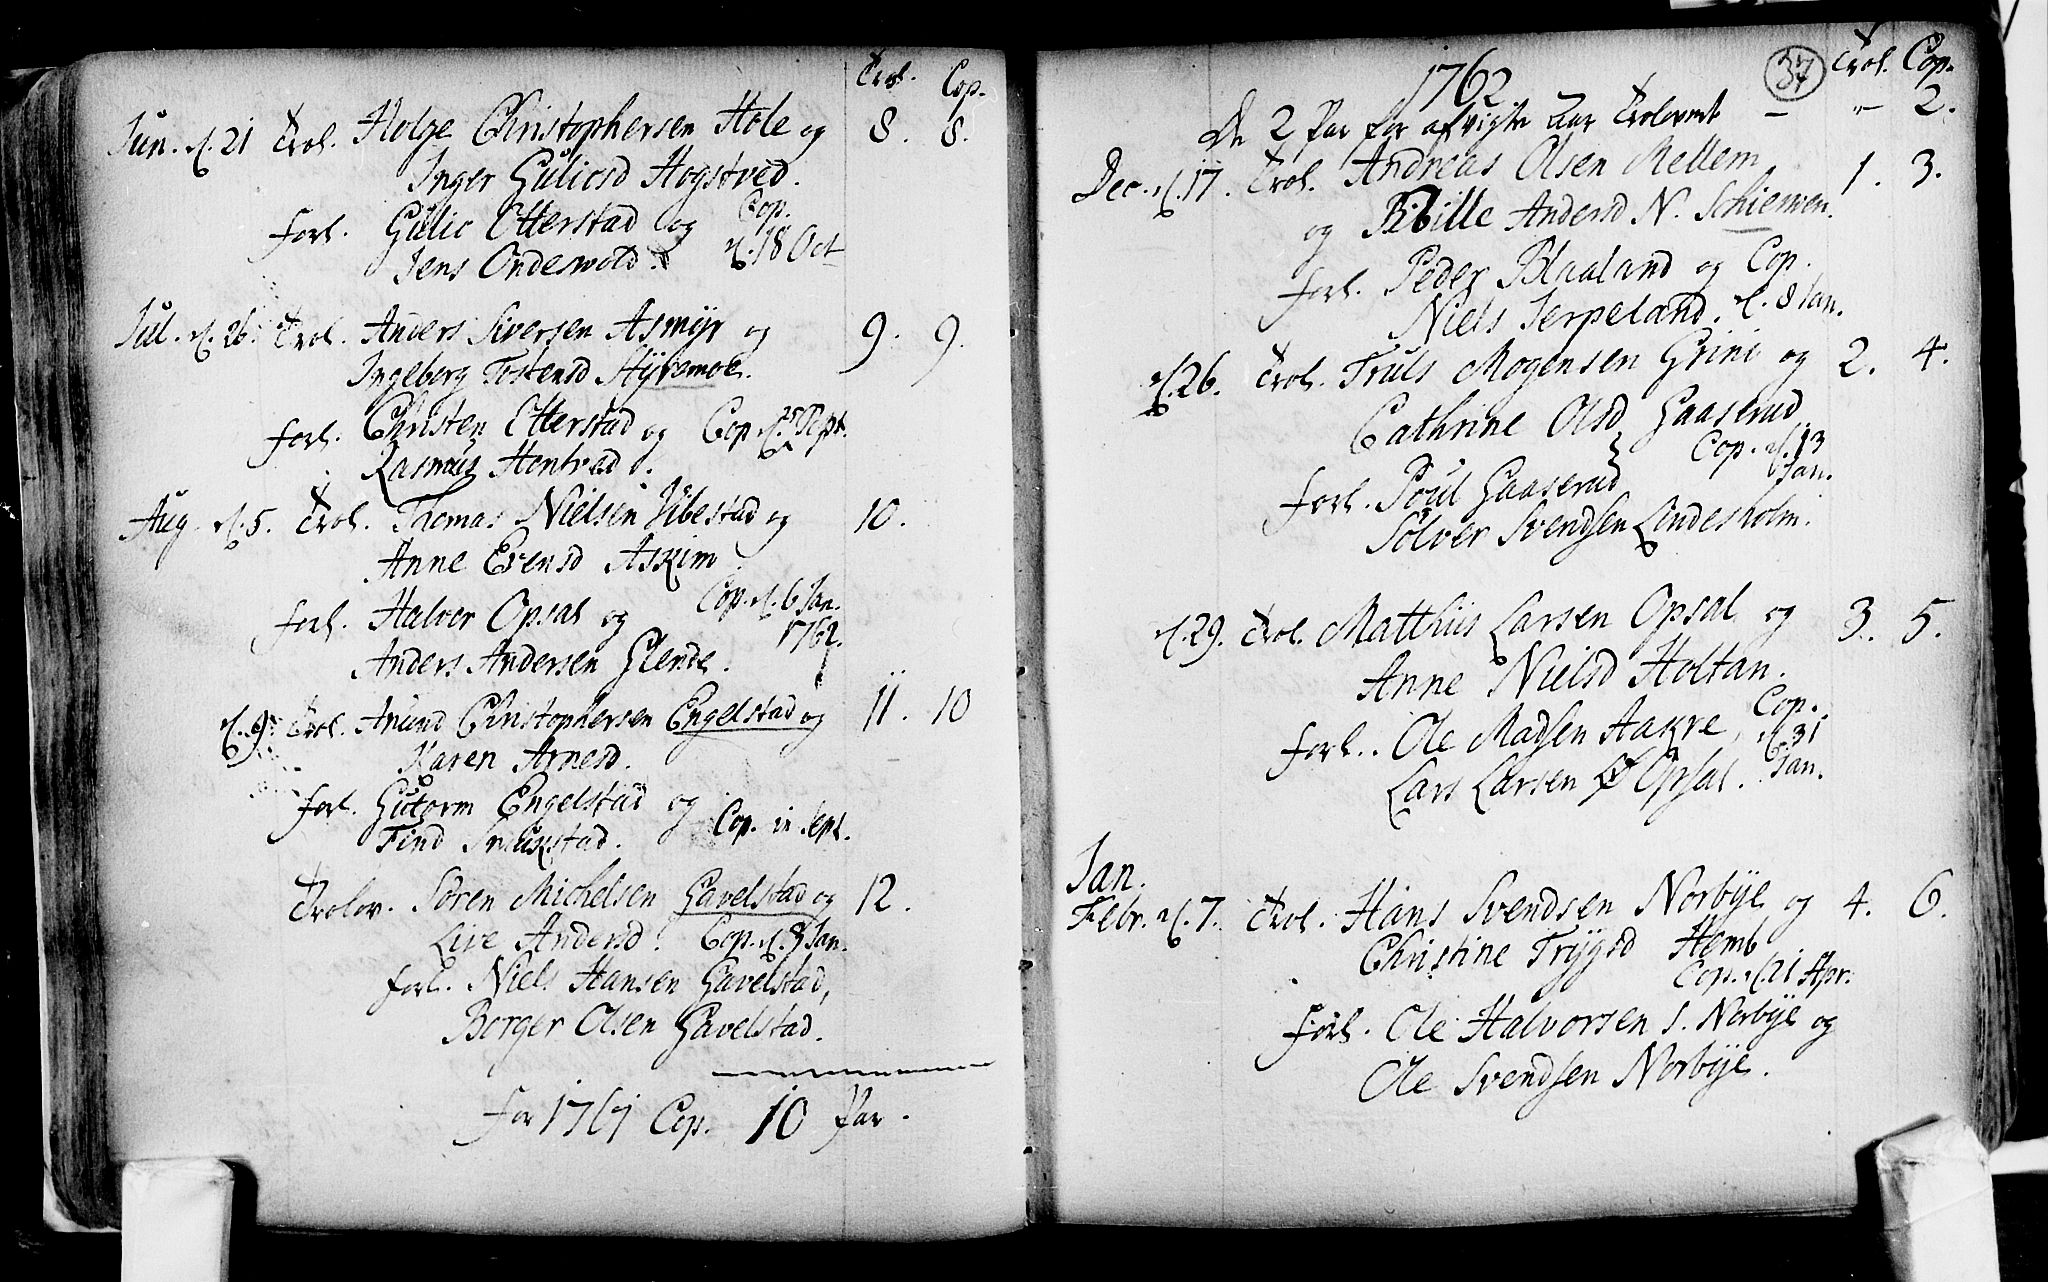 Trol. Cop.
Jun. d. 21 Trol. Holge Christophersen Hole og 8. 8.
Inger Guliosd Hogstved.
forl. Gulic Etterstad og Cop.
Jens Ondeswold. d. 18 Oct
Jul. d. 26. Trol. Anders Siversen Asmÿr og 9. 9.
Ingeborg Tostensd Stÿremoe.
forl. Christen Etterstad og Cop. d. 25 Sept.
Rasmus Hentved.
Aug. d. 5. Trol. Thomas Nielsen Vibestad og 10.
Anne Evensd Askim
forl. Halvor Opsal og Cop. d. 6 Jan.
Anders Andersen Glende. 1762.
d. 9. Trol. Anund Christophersen Engelstad og 11. 10
Karen Arnesd.
forl. Gutorm Engelstad og
Find Smukstad. Cop. in Sept.
Trolov. Sören Michelsen Gavelstad og 12.
Live Andersd. Cop. d. 8 Jan.
forl. Niels Hansen Gavelstad,
Borger Olsen Gavelstad.
for 1761 Cop. 10 Par.
1762 37 Trol. Cop.
De 2 Par for afvigte Aar Trolovede – " – 2.
Dec. d. 17. Trol. Andreas Olsen Mellem 1. 3.
og Sibille Andersd N. Schieuven.
forl. Peder Blaaland og Cop.
Niels Jerpeland. d. 8 Jan.
d. 26. Trol. Truls Mogensen Grini og 2. 4.
Cathrine Olsd Gaaserud
Cop. d. 13
forl. Poul Gaaserud Jan.
Sölver Svendsen Lindesholm.
d. 29. Trol. Matthiis Larsen Opsal og 3. 5.
Anne Nielsd Holtan.
forl. Ole Madsen Aakre, Cop. d. 31
Lars Larsen Opsal. Jan.
Jan.
Febr. d. 7. Trol. Hans Svendsen Norbÿe og 4. 6.
Christine Trÿgsd Hemb
Cop. d. 21 Apr.
forl. Ole Halvorsen S. Norbÿe og
Ole Svendsen Norbÿe.